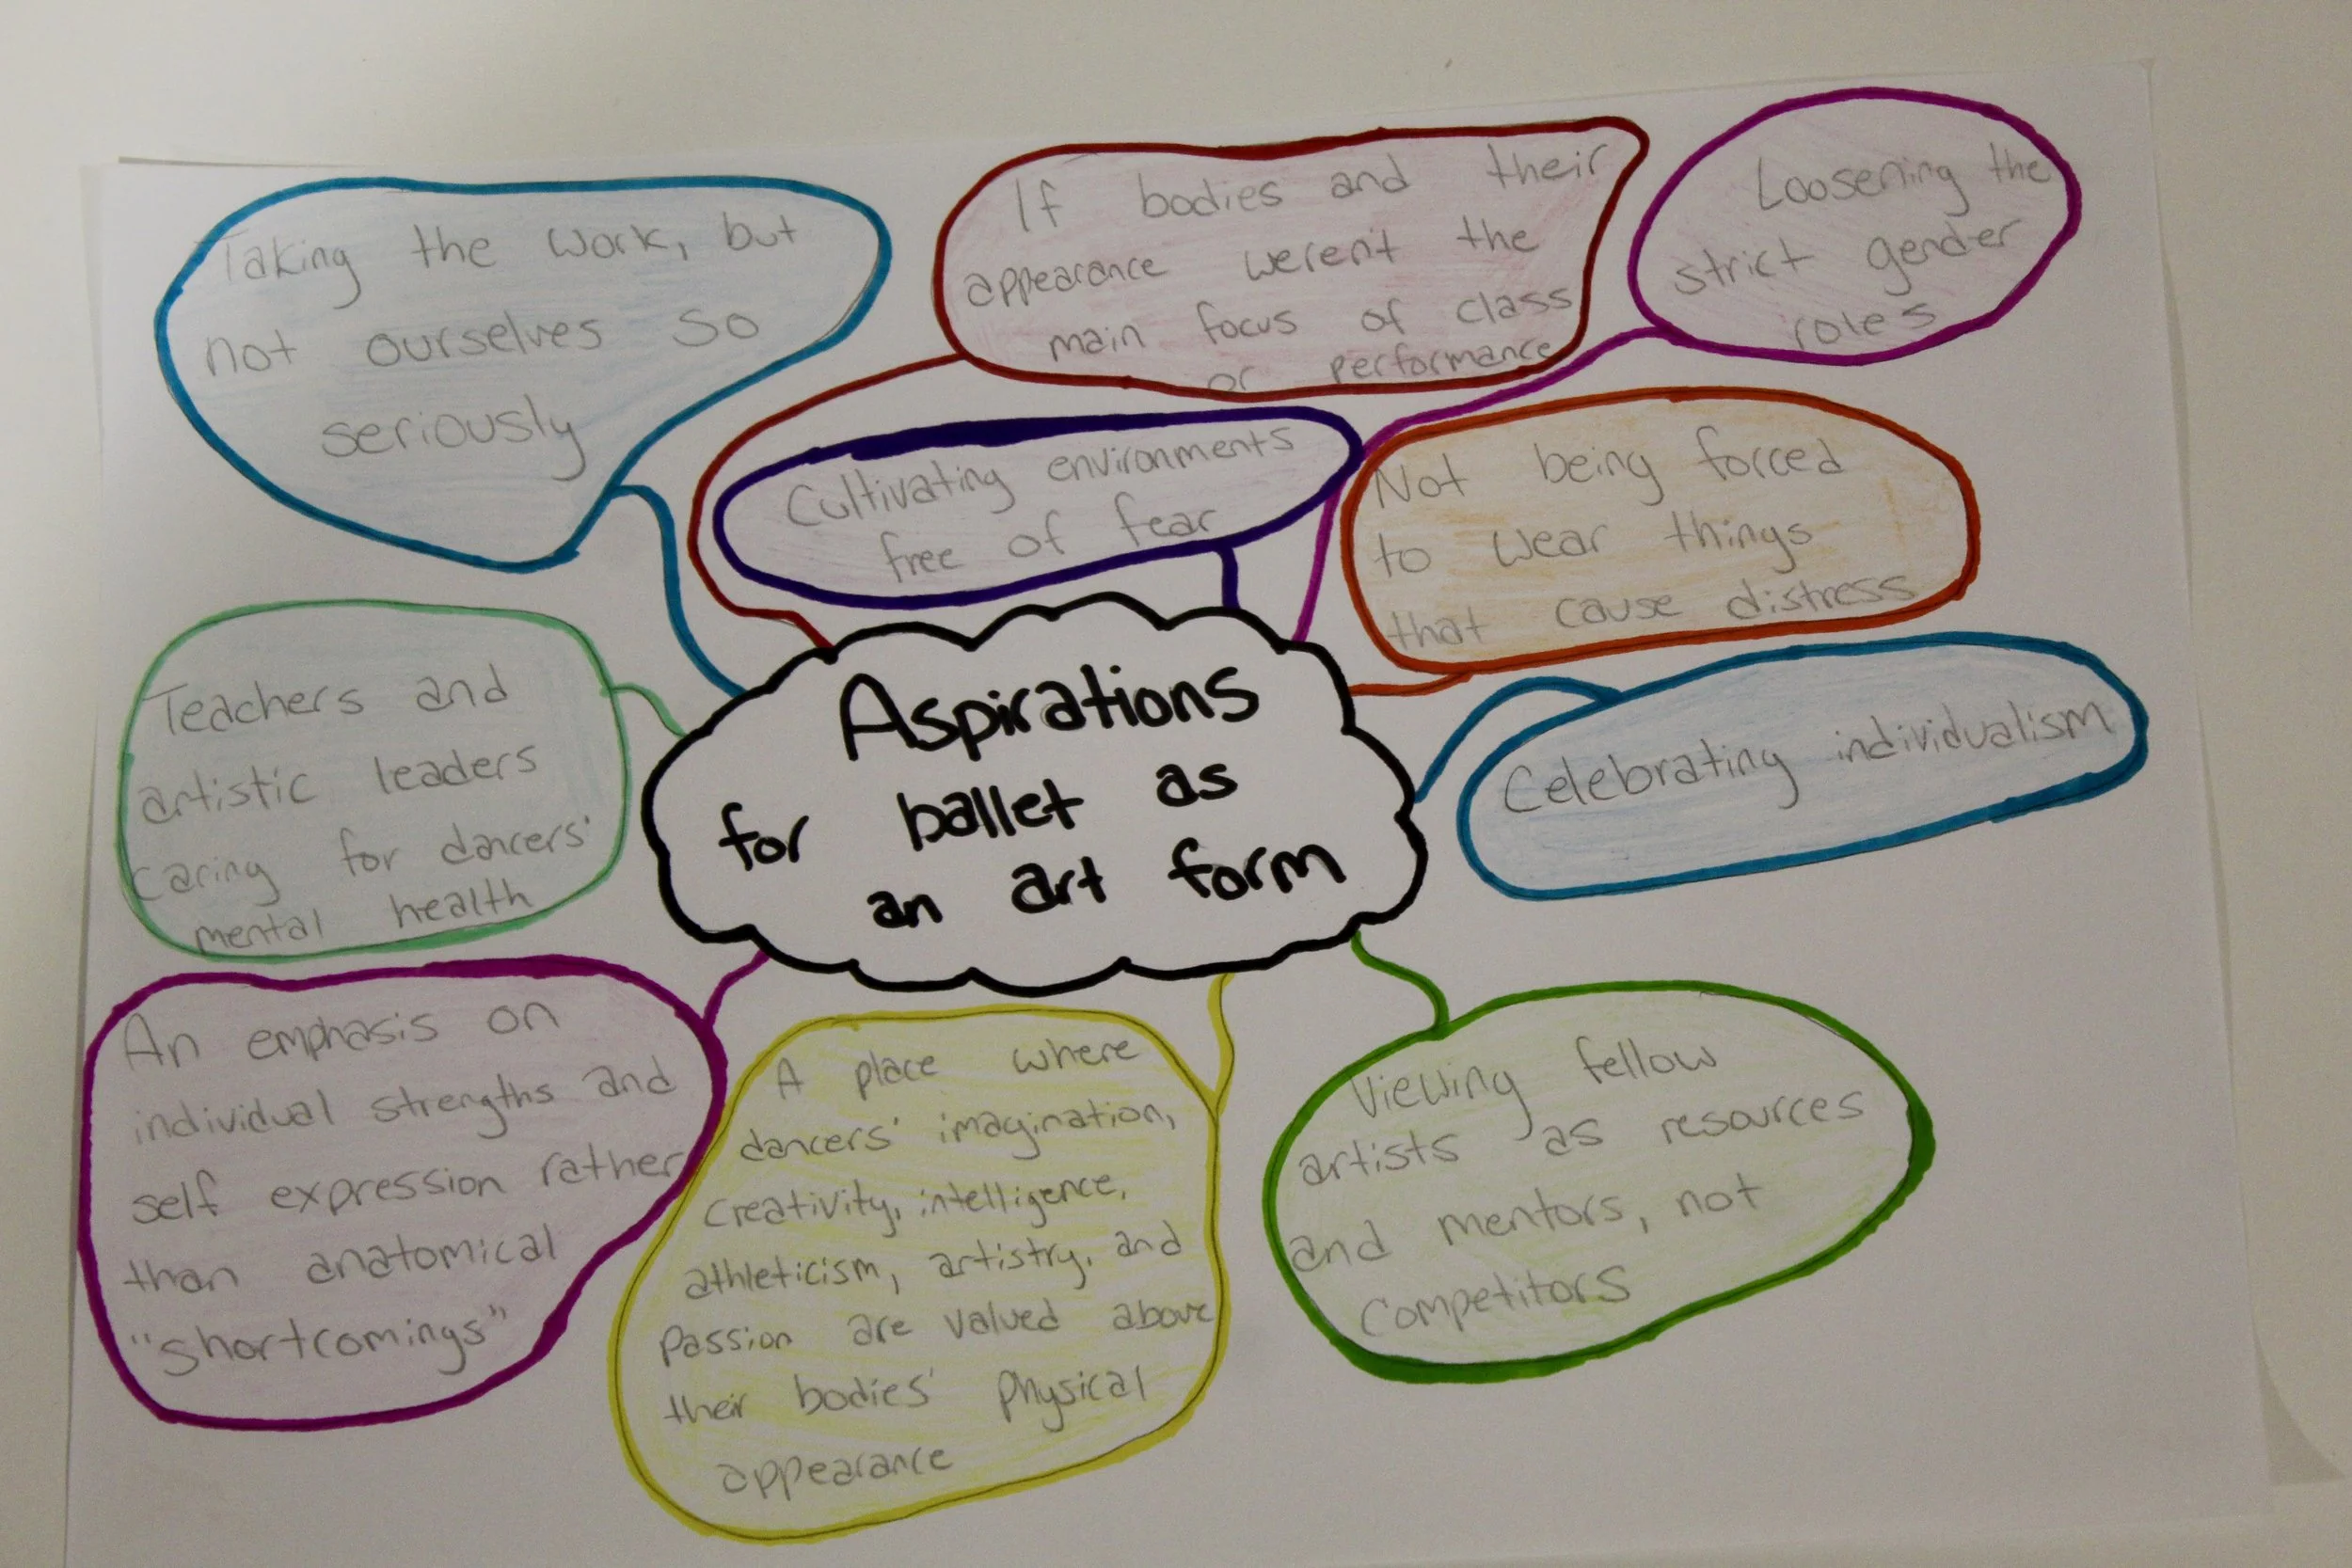 Taking the work, but
not ourselves so
seriously
If bodies and their
appearance weren't the
main focus of class
or performance
Loosening the
strict gender
roles
Cultivating environments
free of fear
Not being forced
to wear things
that cause distress
Teachers and
artistic leaders
caring for dancers'
mental health
Aspirations
for ballet as
an art form
Celebrating individualism
An emphasis on
individual strengths and
self expression rather
than anatomical
"shortcomings"
A place where
dancers' imagination,
creativity, intelligence,
athleticism, artistry, and
passion are valued above
their bodies' physical
appearance
Viewing fellow
artists as resources
and mentors, not
competitors